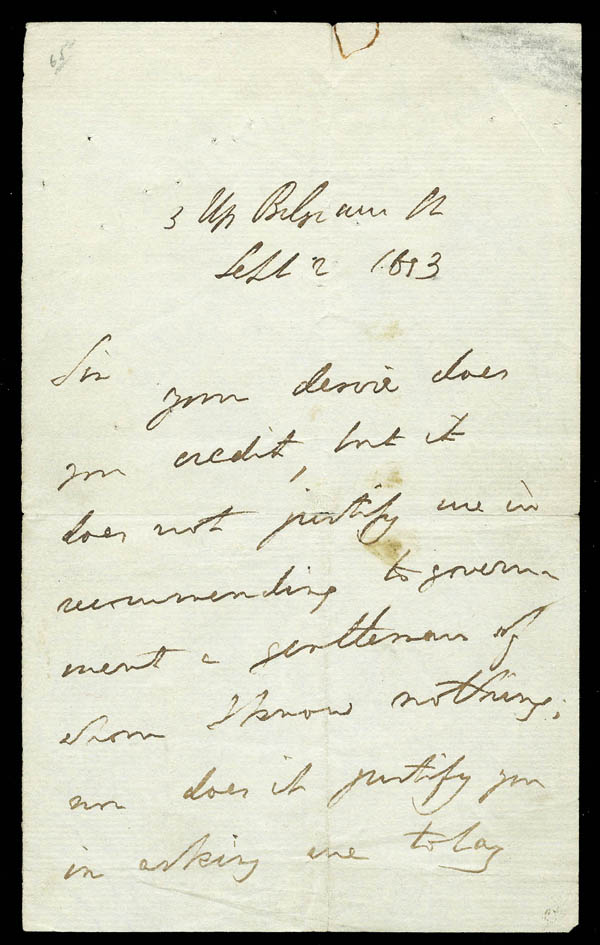 65
3 Up Belgrave St
Sept 2 1853
Sir
your desire does
you credit, but it
does not justify me in
recommending to govern-
ment a gentleman of
whom I know nothing;
nor does it justify you
in asking me to lay